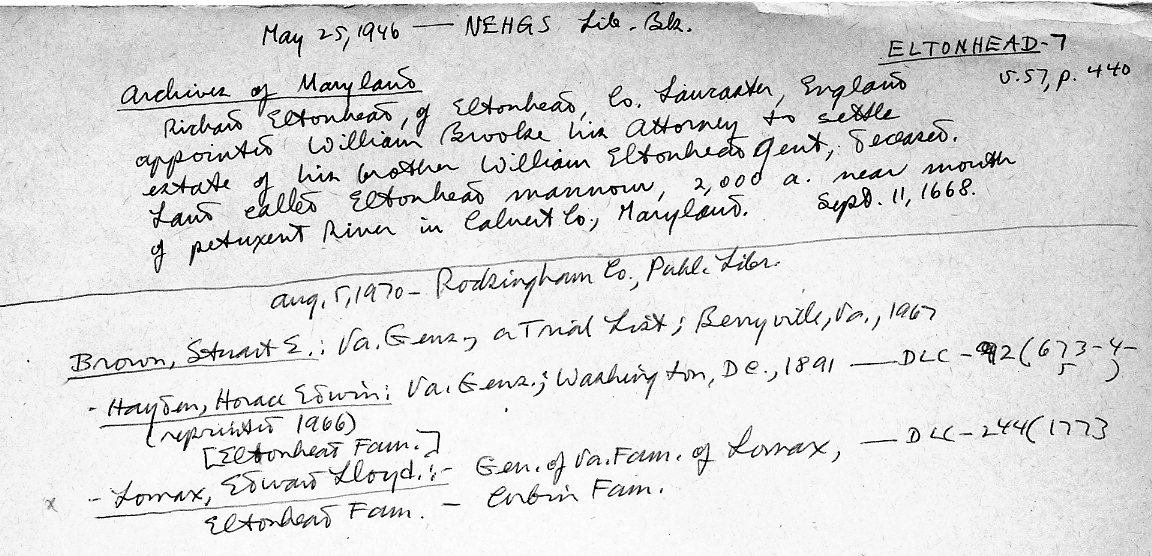 May 25, 1946 — NEHGS Lib. Bk.
ELTONHEAD-7
Archives of Maryland
v.57, p. 440
Richard Eltonhead, of Eltonhead, Co. Lancaster, England
appointed William Brooke his Attorney to settle
estate of his brother William Eltonhead Gent, deceased.
Land called Eltonhead mannour, 2,000 a. near mouth
of petuxent River in Calvert Co., Maryland. Sept. 11, 1668.
Aug. 5, 1970 - Rockingham Co., Publ. Libr.
Brown, Stuart E.: Va. Gens., a Trial List; Berryville, Va., 1967
- Hayden, Horace Edwin: Va. Gens.; Washington, DC., 1891 — DLC - 92(673-4-
5)
(reprinted 1966)
[Eltonhead Fam.]
- Lomax, Edward Lloyd.:- Gen. of Va. Fam. of Lomax, — DLC-244(1773
x Eltonhead Fam. - Corbin Fam.